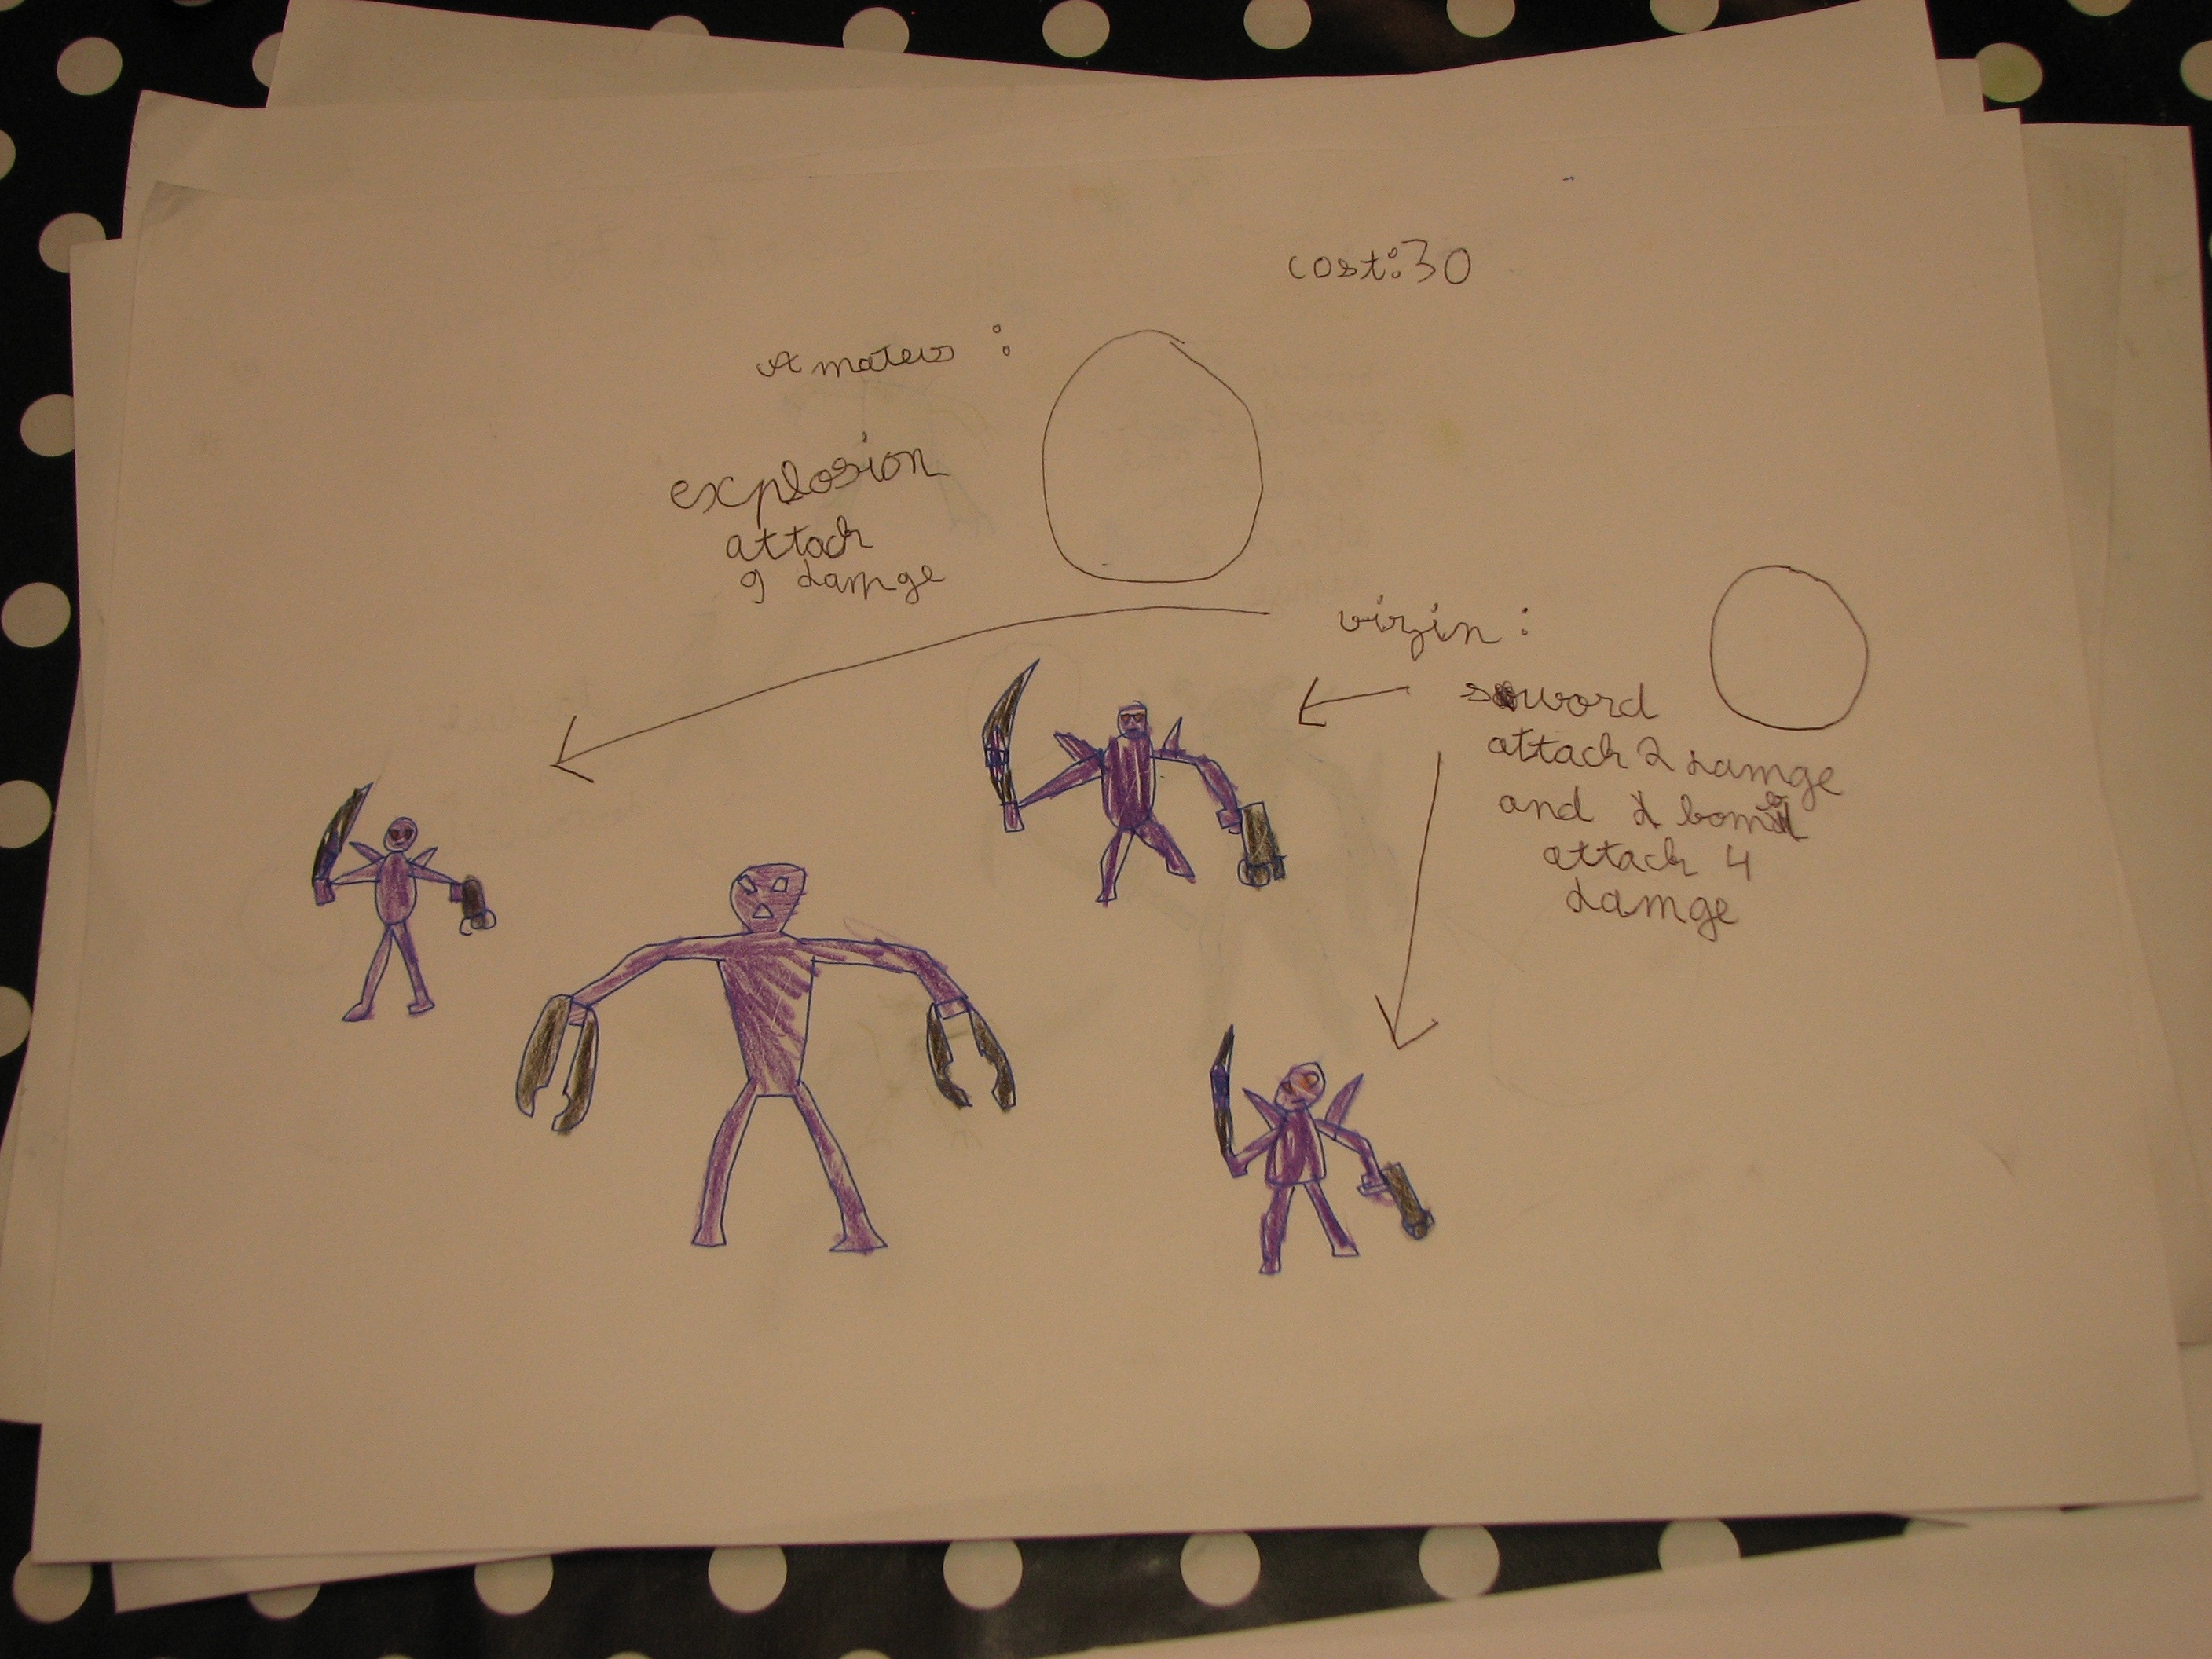 cost:30
Amateus :
explosion
attach
9 damge
virjin :
sword
attach 2 damge
and bomb
attach 4
damge